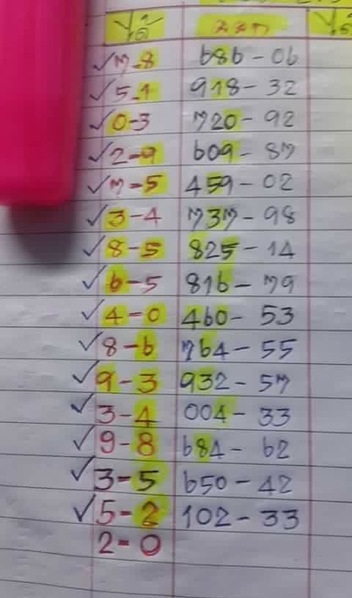 √7-8 686-06
√5-1 918-32
√0-3 720-92
√2-9 609-87
√7-5 459-02
√3-4 737-98
√8-5 825-14
√6-5 816-79
√4-0 460-53
√8-6 764-55
√9-3 932-57
√3-4 004-33
√9-8 684-62
√3-5 650-42
√5-2 102-33
2-0